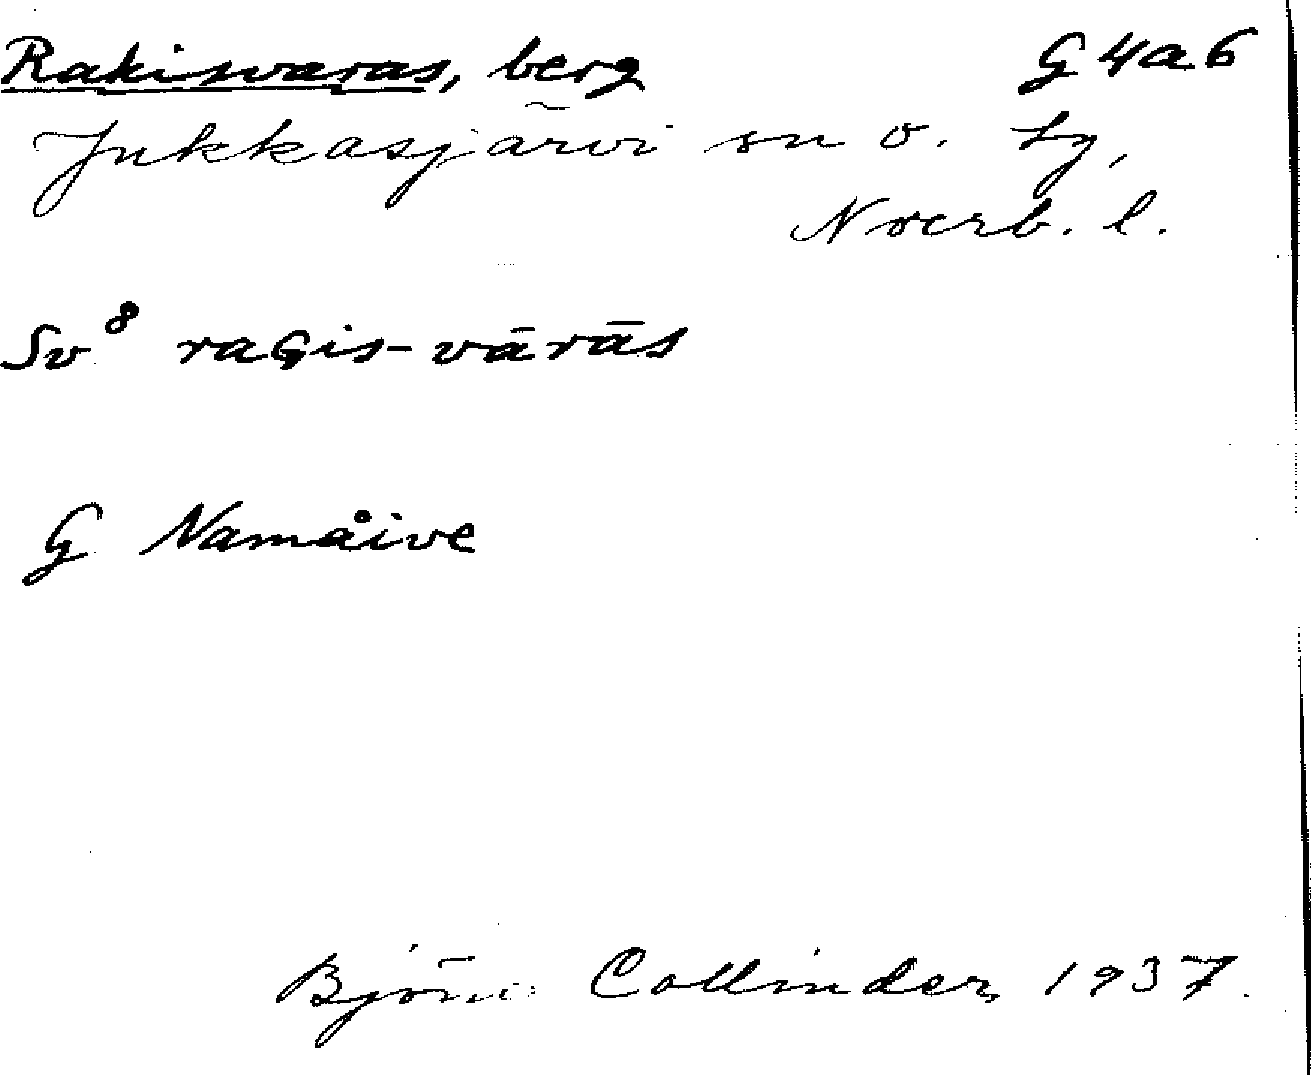 Rakisvaras, berg G4a6
Jukkasjärvi sn o. tg,
Norrb. l.
Sv⁸ raGis-vārās
G Namåive
Björn Collinder, 1937.